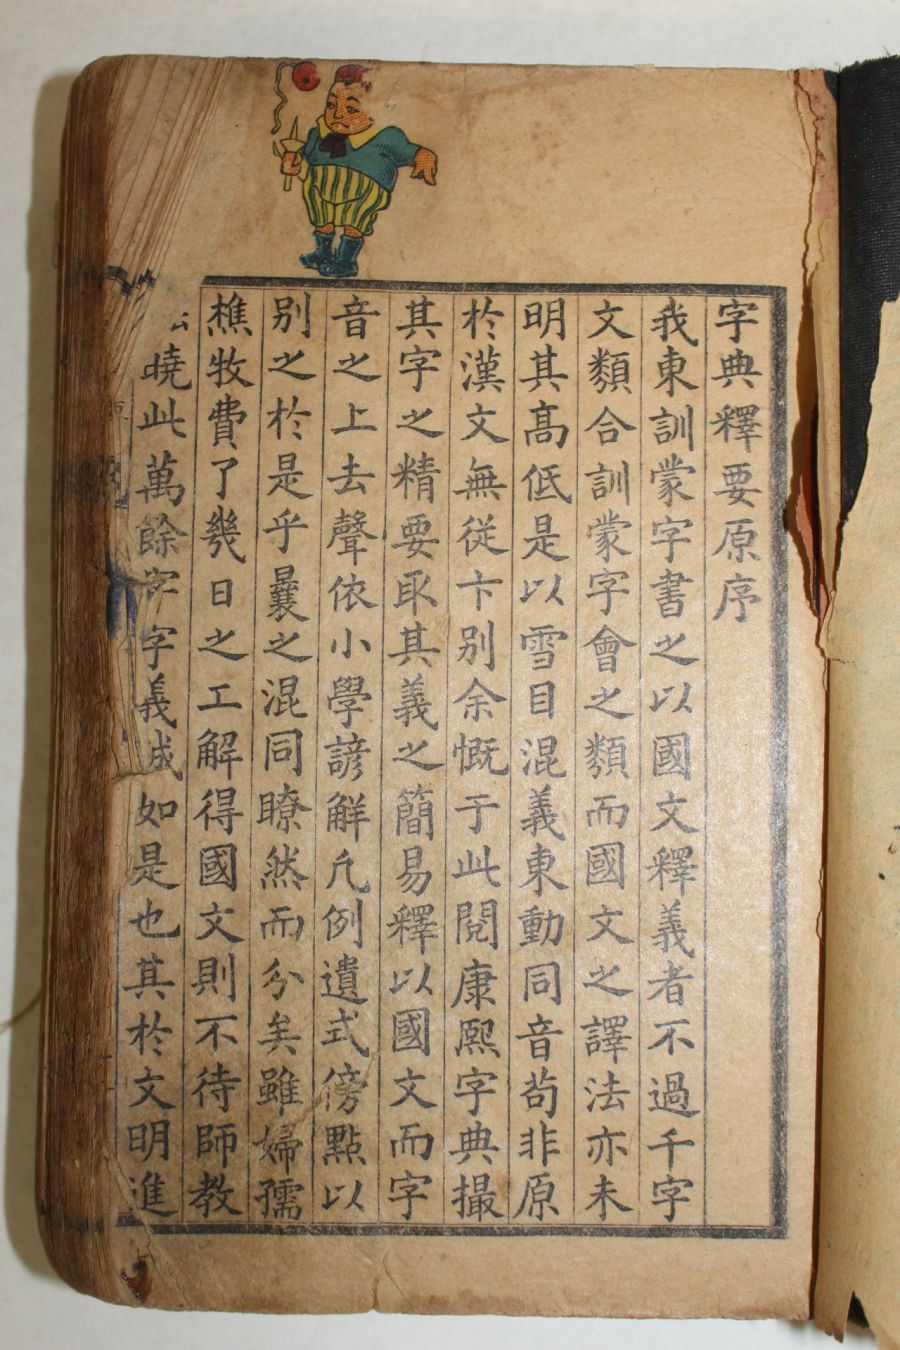 字典釋要原序
我東訓蒙字書之以國文釋義者不過千字
文類合訓蒙字會之類而國文之譯法亦未
明其高低是以雪目混義東動同音苟非原
於漢文無從卞別余慨于此閱康熙字典撮
其字之精要取其義之簡易釋以國文而字
音之上去聲依小學諺解凡例遺式傍點以
別之於是乎曩之混同瞭然而分矣雖婦孺
樵牧費了幾日之工解得國文則不待師教
曉此萬餘字字義誠如是也其於文明進